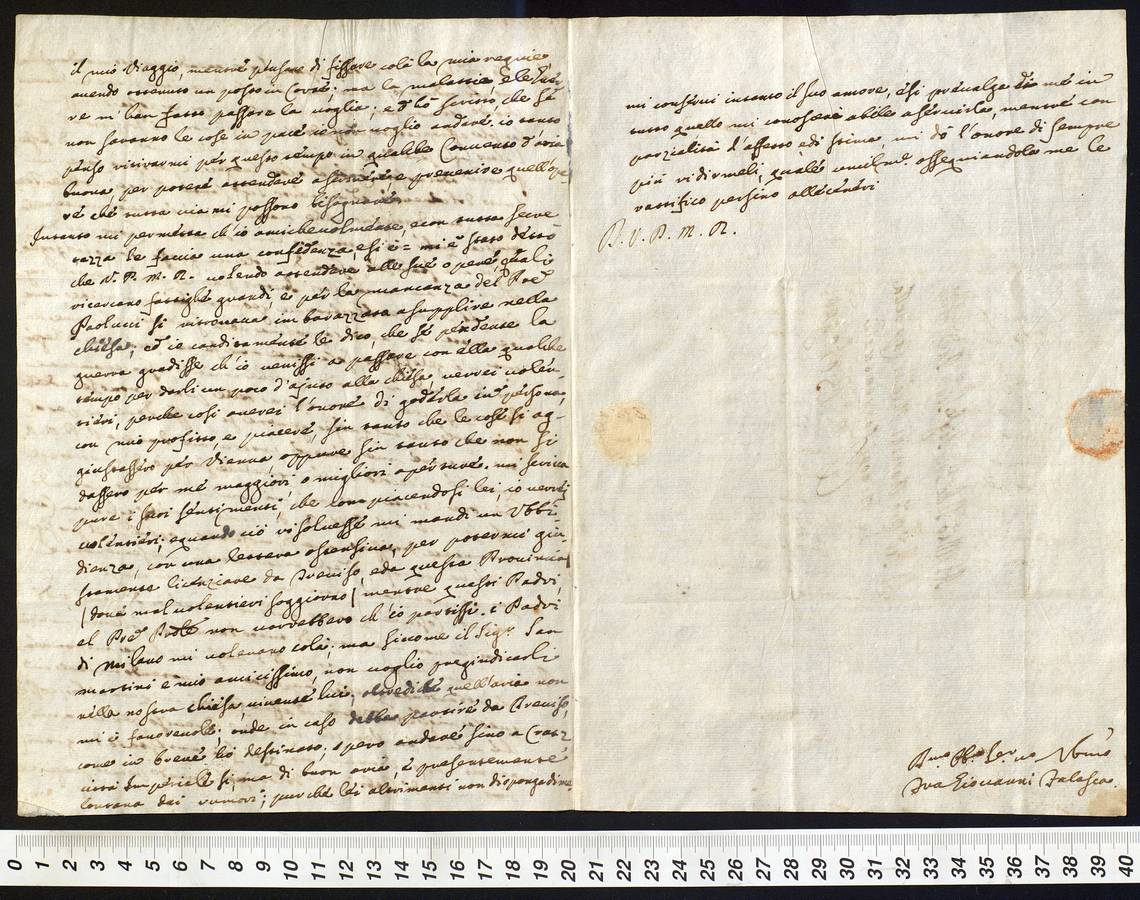 il mio Viaggio, mentre pensavo di fissare colà la mia requie,
avendo ottenuto un posto in Corte: ma la malattia, e le
re m'han fatto passare la voglia; ed hò scritto, che se
non saranno le cose in pace io non voglio andare. io tanto
penso ritirarmi per questo tempo in qualche Convento d'aria
buona per potere attendere a e prevenire quell'ope-
re che tutta via mi possono bisognare.
Intanto mi permetta ch'io amichevolmente, e con tutta secre-
tezza le faccia una confidenza, e si è = mi è stato detto
che V. P. M. R. volendo attendere alle sue opere quali
ricercano fattighe grandi, e per la mancanza del Pre
Paolucci si ritrovava imbarazzata a supplire nella
chiesa, ed io candidamente le dico, che se pendente la
guerra gradisse ch'io venissi a passare con ella qualche
tempo per darli un poco d'ajuto alla chiesa, verrei volen-
tieri, perche cosi averei l'onore di goderla in persona,
con mio profitto, e piacere, sin tanto che le cose si ag-
giustassero per Vienna, oppure sin tanto che non si
dassero per me maggiori o migliori aperture. mi scriva
pure i suoi sentimenti, che piacendosi lei, io verrei
volentieri; e quando ciò risolvesse mi mandi un Ubbi-
dienza, con una lettera ostensiva, per potermi giu-
stamente licenziare da Treviso, e da questa Provincia
(dove mal volentieri soggiorno) mentre questi Padri,
el Pre Prole non vorrebbero ch'io partissi. i Padri
di Milano mi volevano colà; ma siccome il Sigr San
martini è mio amicissimo, non voglio pregiudicarli
nella nostra chiesa, vivente lui; oltredichè quell'aria non
mi è favorevole; onde in caso debba partire da Treviso,
come in breve hò destinato, spero andare sino a
città Imperiale si, ma di buon aria, è presentemente
lontana dai rumori; purchè lei altrimenti non disponga di me
mi conservi intanto il suo amore, e si prevalga di me in
tutto quello mi conoscerà abile a servirla, mentre con
parzialità d'affetto e di stima, mi dò l'onore di sempre
più ridirmeli, quale umilme ossequiandola me le
ratifico persino alle ceneri
D. V. P. M. R.
Ser.
Fra Giovanni Falasca